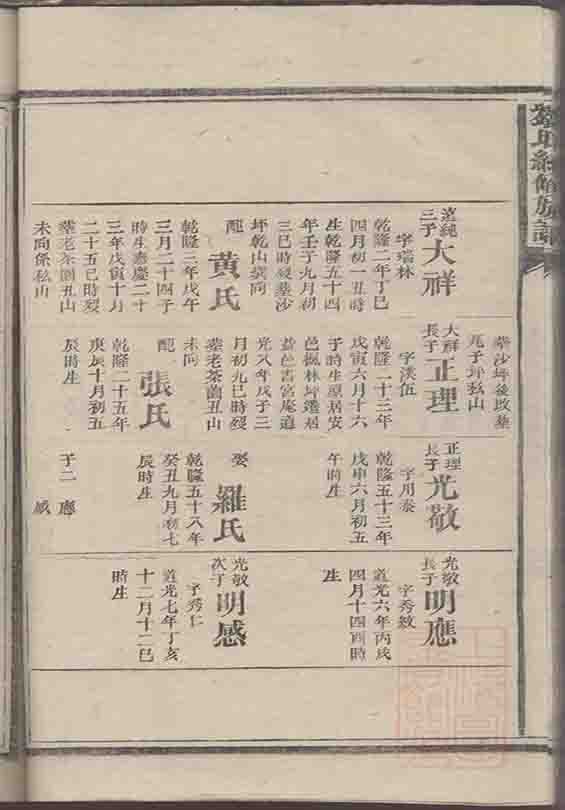 三子 大祥
字瑞林
乾隆二年丁巳
四月初一丑時
生乾隆五十四
年壬子九月初
三巳時歿葬沙
坪乾山巽向
配 黃氏
乾隆三年戊午
三月二十四子
時生嘉慶二十
三年戊寅十月
二十五巳時歿
葬老茶園丑山
未向係私山
葬沙坪後改葬
子坪私山
大祥長子 正理
字漢伍
乾隆二十三年
戊寅六月十六
子時生原居安
邑楓林坪遷居
益邑書宮庵道
光八年戊子三
月初九巳時歿
葬老茶園丑山
未向
配 張氏
乾隆二十五年
庚辰十月初五
辰時生
正理長子 光敬
字用泰
乾隆五十三年
戊申六月初五
午時生
娶 羅氏
乾隆五十八年
癸丑九月初七
辰時生
子二 應
感
光敬長子 明應
字秀敏
道光六年丙戌
四月十四酉時
生
光敬次子 明感
字秀仁
道光七年丁亥
十二月十二巳
時生